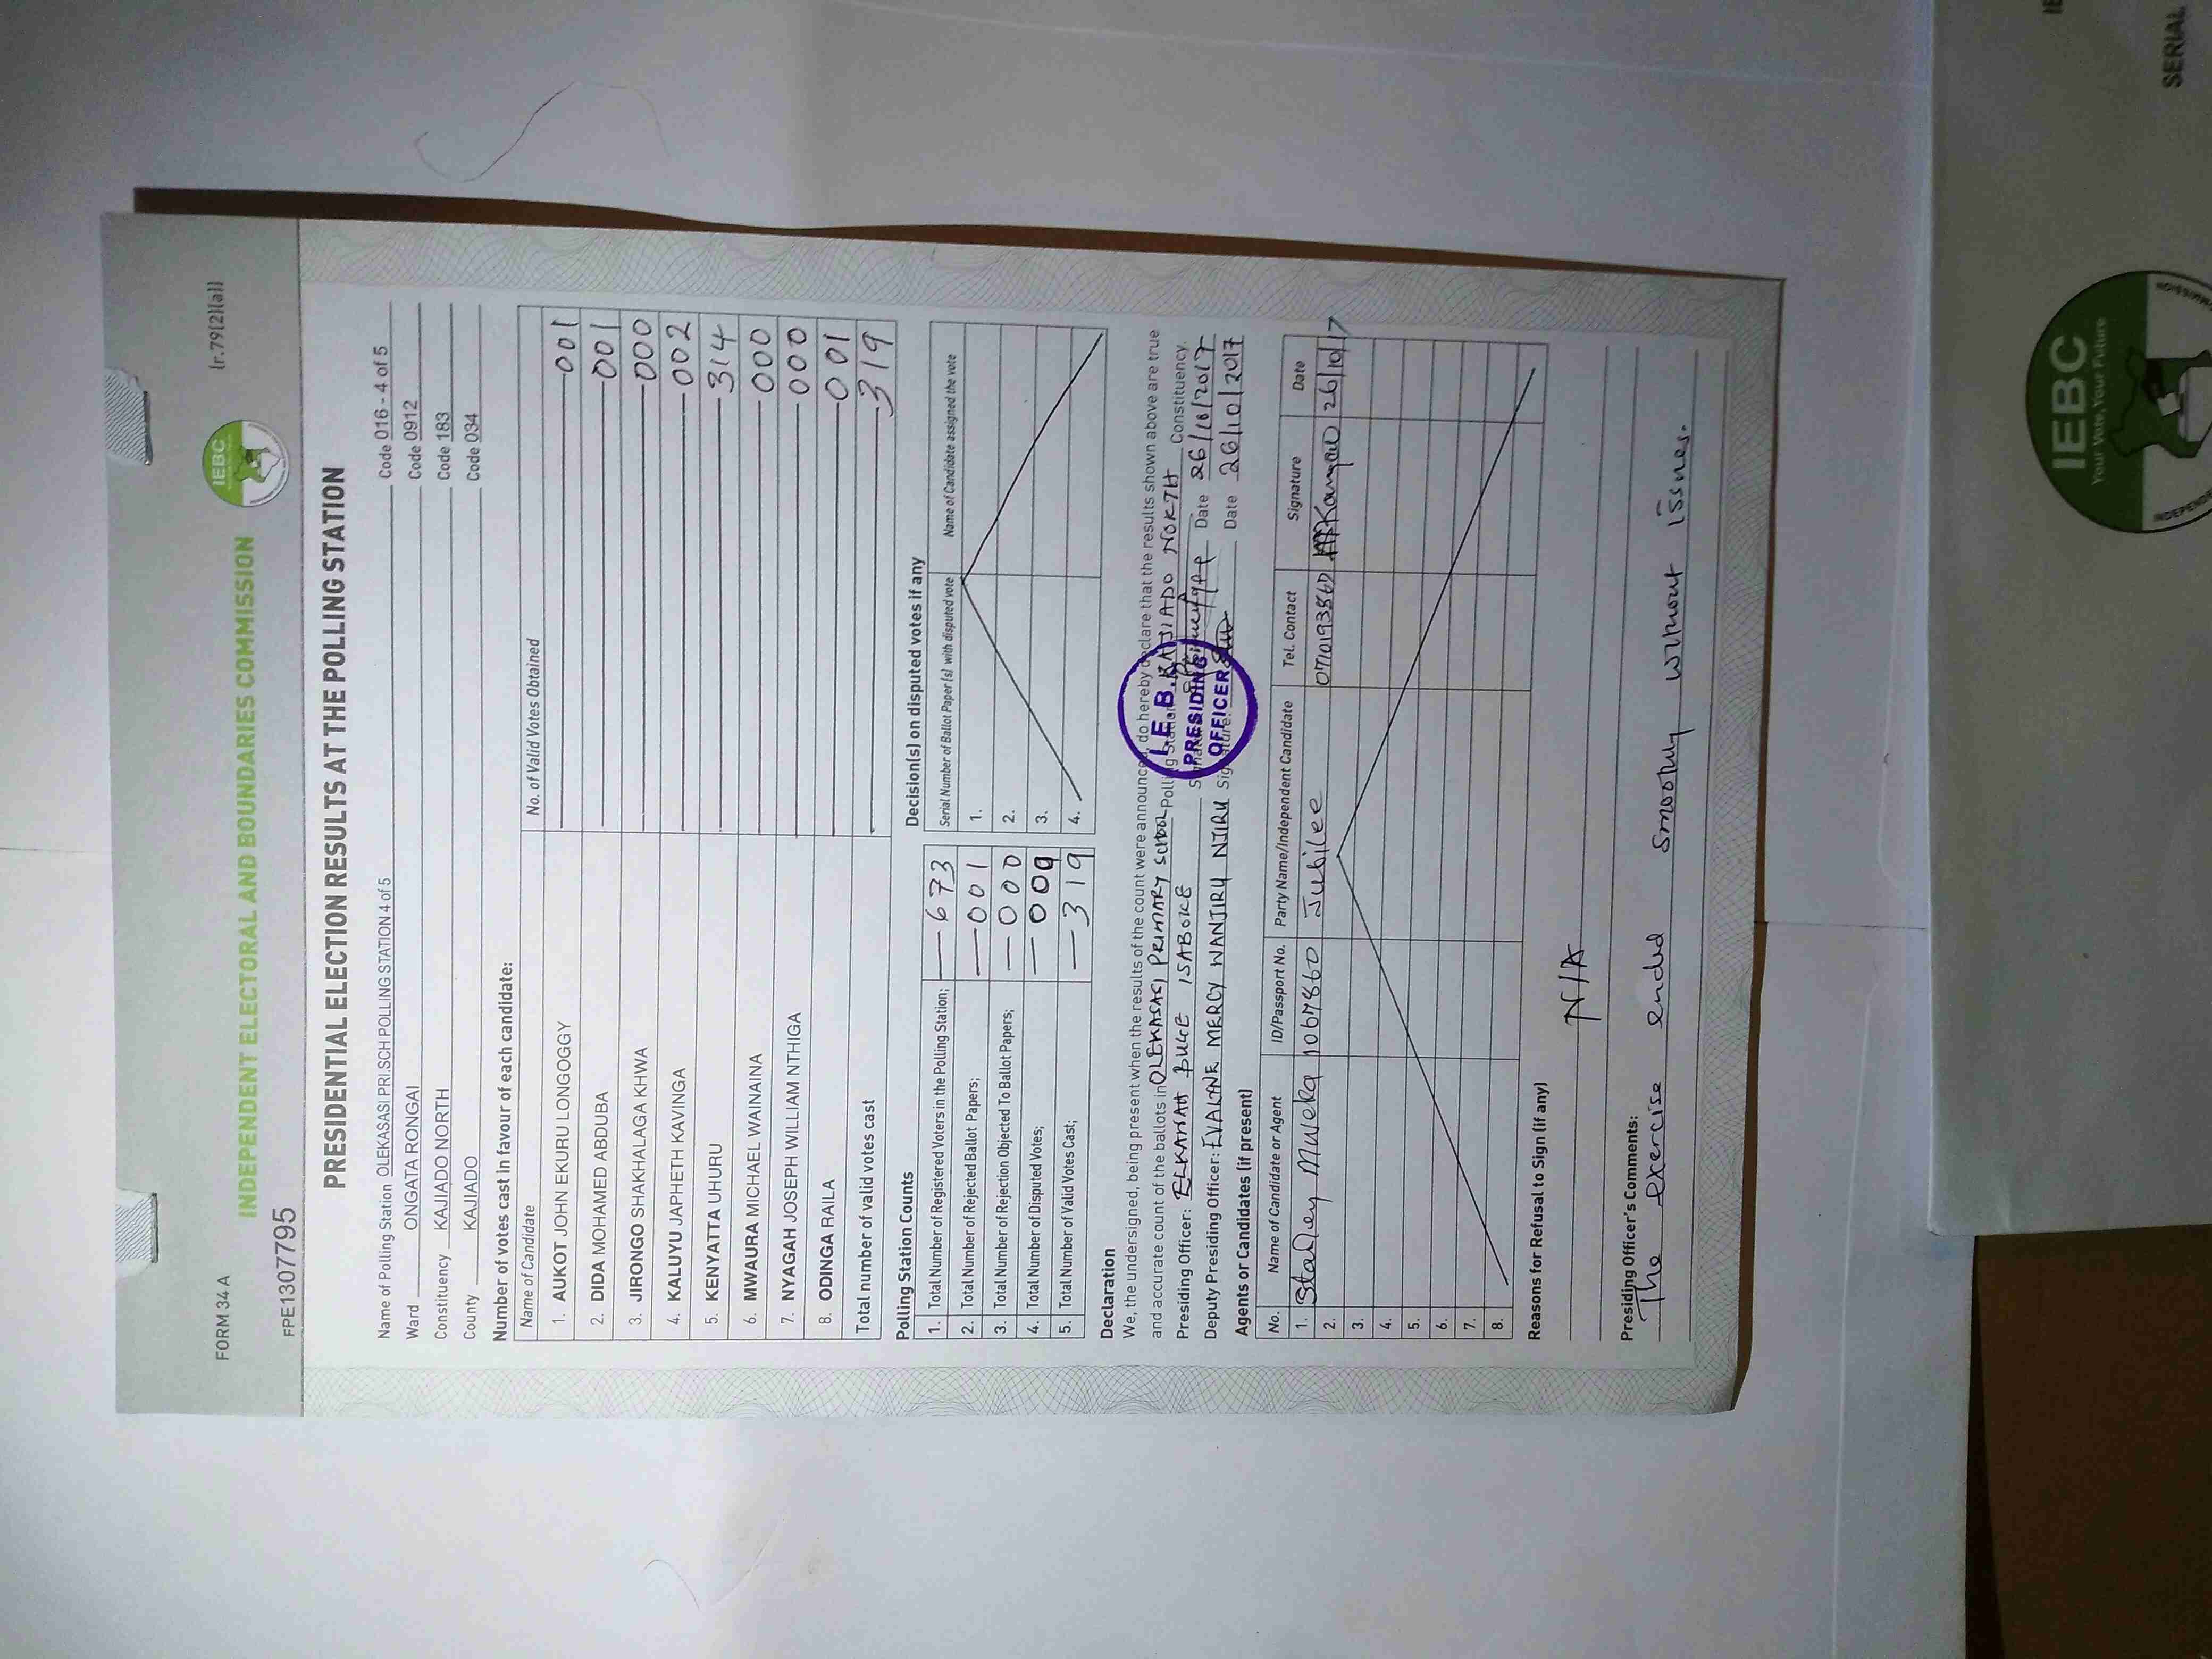 FORM 34 A
(r.79(2)(a))
IEBC
INDEPENDENT ELECTORAL AND BOUNDARIES COMMISSION
FPE1307795
PRESIDENTIAL ELECTION RESULTS AT THE POLLING STATION
Name of Polling Station OLEKASASI PRI.SCH POLLING STATION 4 of 5 Code 016 - 4 of 5
Ward ONGATA RONGAI Code 0912
Constituency KAJIADO NORTH Code 183
County KAJIADO Code 034
Number of votes cast in favour of each candidate:
Name of Candidate No. of Valid Votes Obtained
1. AUKOT JOHN EKURU LONGOGGY 001
2. DIDA MOHAMED ABDUBA 001
3. JIRONGO SHAKHALAGA KHWA 000
4. KALUYU JAPHETH KAVINGA 002
5. KENYATTA UHURU 314
6. MWAURA MICHAEL WAINAINA 000
7. NYAGAH JOSEPH WILLIAM NTHIGA 000
8. ODINGA RAILA 001
Total number of valid votes cast 319
Polling Station Counts
1. Total Number of Registered Voters in the Polling Station; 673
2. Total Number of Rejected Ballot Papers; 001
3. Total Number of Rejection Objected To Ballot Papers; 000
4. Total Number of Disputed Votes; 000
5. Total Number of Valid Votes Cast; 319
Decision(s) on disputed votes if any
Serial Number of Ballot Paper (s) with disputed vote Name of Candidate assigned the vote
1.
2.
3.
4.
Declaration
We, the undersigned, being present when the results of the count were announced, do hereby declare that the results shown above are true
and accurate count of the ballots in OLEKASASI PRIMARY SCHOOL Polling Station KAJIADO NORTH Constituency.
Presiding Officer: ELKANAH ISABOKE Signature Date 26/10/2017
Deputy Presiding Officer: EVALYNE MERCY WANJIRU NJIRU Signature: Date 26/10/2017
I.E.B.C
PRESIDING
OFFICER
Agents or Candidates (if present)
No. Name of Candidate or Agent ID/Passport No. Party Name/Independent Candidate Tel. Contact Signature Date
1. Stanley Muweka 1067860 Jubilee 0710193867 26/10/17
2.
3.
4.
5.
6.
7.
8.
Reasons for Refusal to Sign (if any)
N/A
Presiding Officer's Comments:
The exercise ended smoothly without issues.
IEBC
Your Vote, Your Future
SERIAL